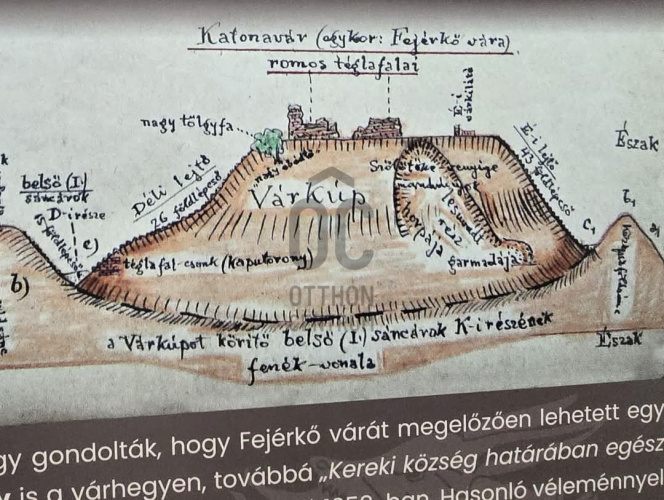 Katonavár (egykor: Fejérkő vára)
romos téglafalai
É-i
várkilátó
nagy tölgyfa
belső (I.)
sáncárok
D-i része
Déli lejtő
26 földlépcső
É-i lejtő
43 földlépcső
Észak
Várkúp
c)
c1
b)
b1
téglafal-csonk (kaputorony)
garmadája
OTTHON
a Várkúpot körítő belső (I.) sáncárok K-i részének
fenék-vonala
Észak
gy gondolták, hogy Fejérkő várát megelőzően lehetett egy
is a várhegyen, továbbá „Kereki község határában egész
ban. Hasonló véleménnyel